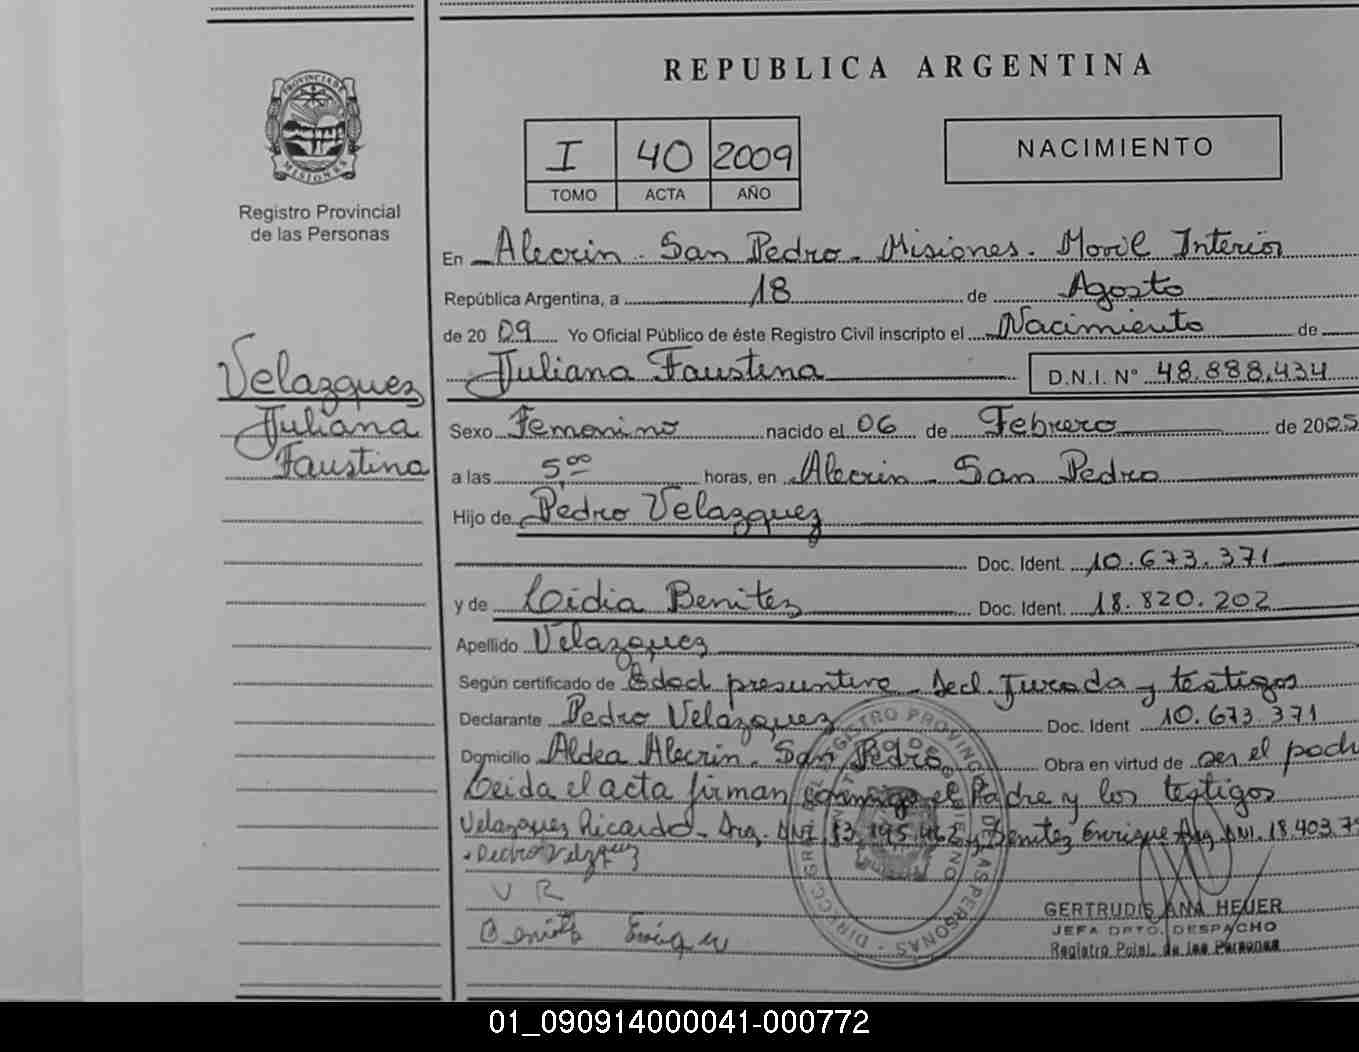 REPUBLICA ARGENTINA
PROVINCIA DE
MISIONES
Registro Provincial
de las Personas
I 40 2009
TOMO ACTA AÑO
NACIMIENTO
En Alecrin - San Pedro - Misiones. Movil Interior
República Argentina, a 18 de Agosto
de 20 09 Yo Oficial Público de éste Registro Civil inscripto el Nacimiento de
Juliana Faustina D.N.I. N° 48.888.434
Velazquez
Juliana
Faustina
Sexo Femenino nacido el 06 de Febrero de 2005
a las 5,00 horas, en Alecrin - San Pedro
Hijo de Pedro Velazquez
Doc. Ident. 10.673.371
y de Lidia Benitez Doc. Ident. 18.820.202
Apellido Velazquez
Según certificado de Edad presuntiva - Decl. Jurada y testigos
Declarante Pedro Velazquez Doc. Ident 10.673 371
Domicilio Aldea Alecrin. San Pedro Obra en virtud de ser el padre
Leida el acta firman conmigo el Padre y los testigos
Velazquez Ricardo - Arg. DNI y Benitez Enrique Arg. DNI. 18.403.7
Pedro Velzquez
V R
Benitez Enrique
GERTRUDIS ANA HEUER
JEFA DPTO. DESPACHO
Registro Pcial. de las Personas
01_090914000041-000772